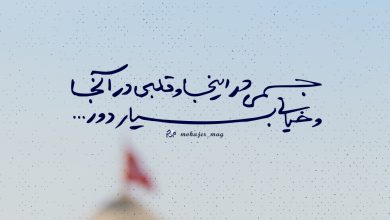 جسمی در اینجا و قلبی در آنجا
و خیالی بسیار دور...
mohajer_mag